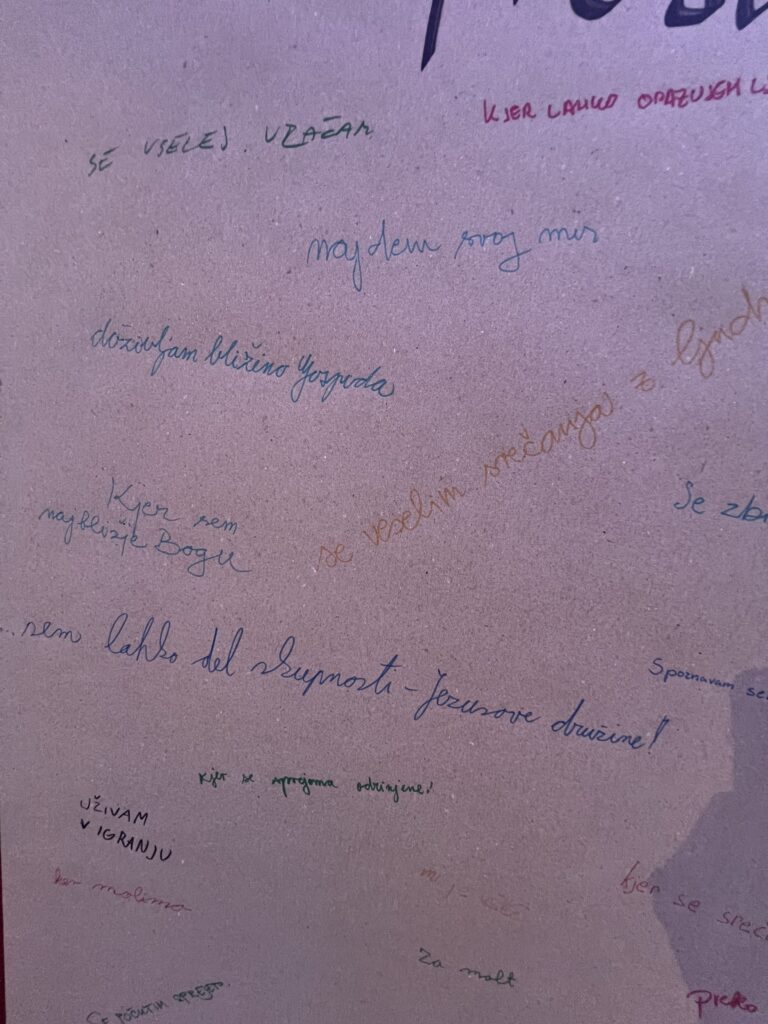 KJER LAHKO OPAZUJEM
SE VSELEJ VRAČAM
najdem svoj mir
doživljam bližino Gospoda
se veselim srečanja z
Kjer sem
najbližje Bogu
Se
...sem lahko del skupnosti - Jezusove družine!
Spoznavam
kjer se sprejema odrinjene!
UŽIVAM
V IGRANJU
ker molimo
kjer se
Za molt
SE POČUTIM SPREJETO
preko